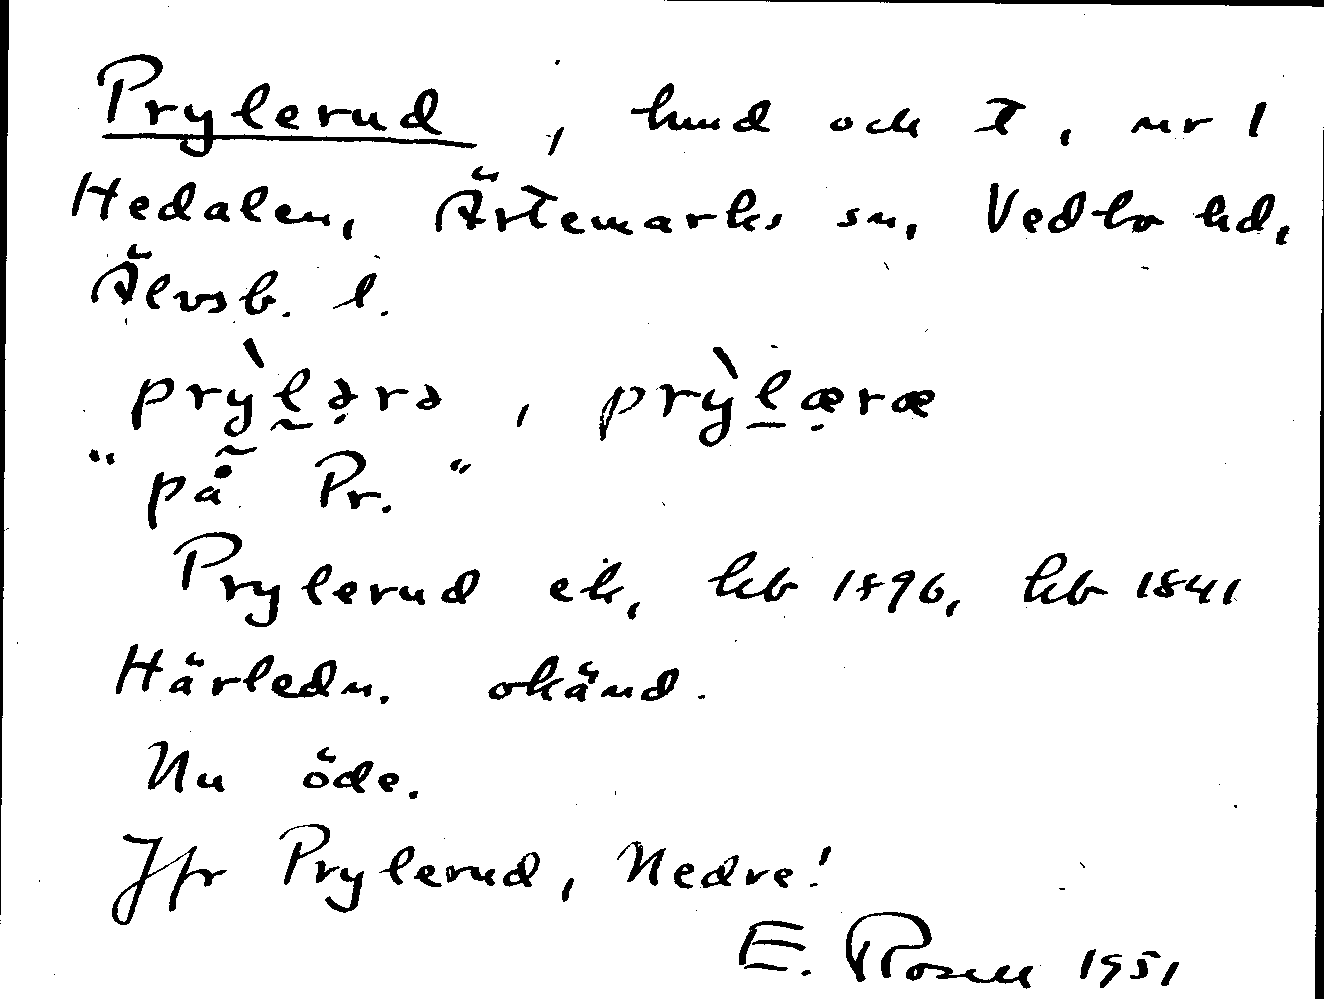 Prylerud, hmd och t, nr 1
Hedalen, Ärtemarks sn, Vedbo hd,
Älvsb. l.
prỳl̰ə̣rə, prỳl̠æ̣ræ
"på Pr."
Prylerud ek, kb 1896, kb 1841
Härledn. okänd.
Nu öde.
Jfr Prylerud, Nedre!
E. Rosell 1951